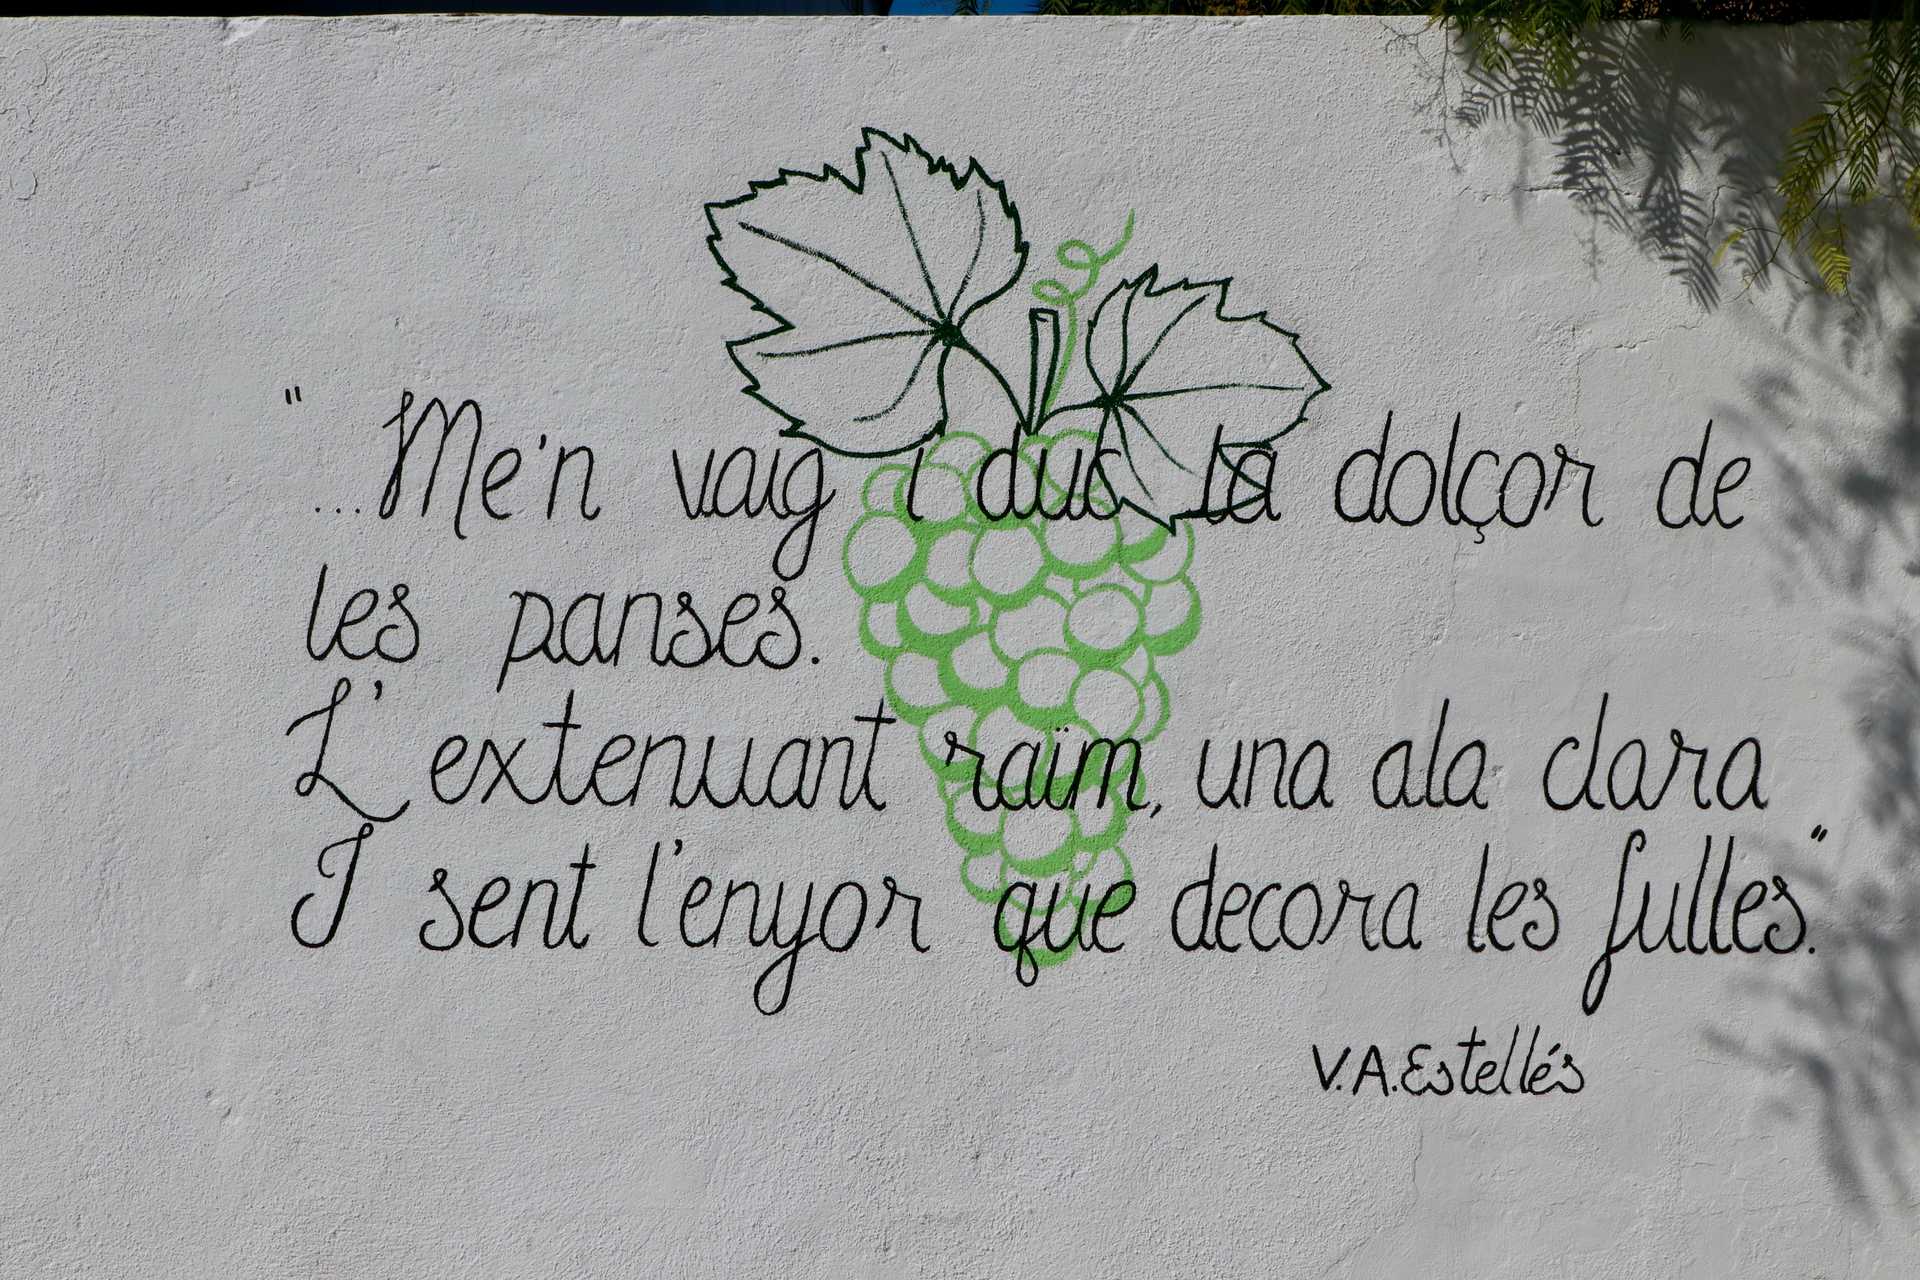 "...Me'n vaig i duc la dolçor de
les panses.
L'extenuant raïm, una ala clara
I sent l'enyor que decora les fulles."
V.A.Estellés